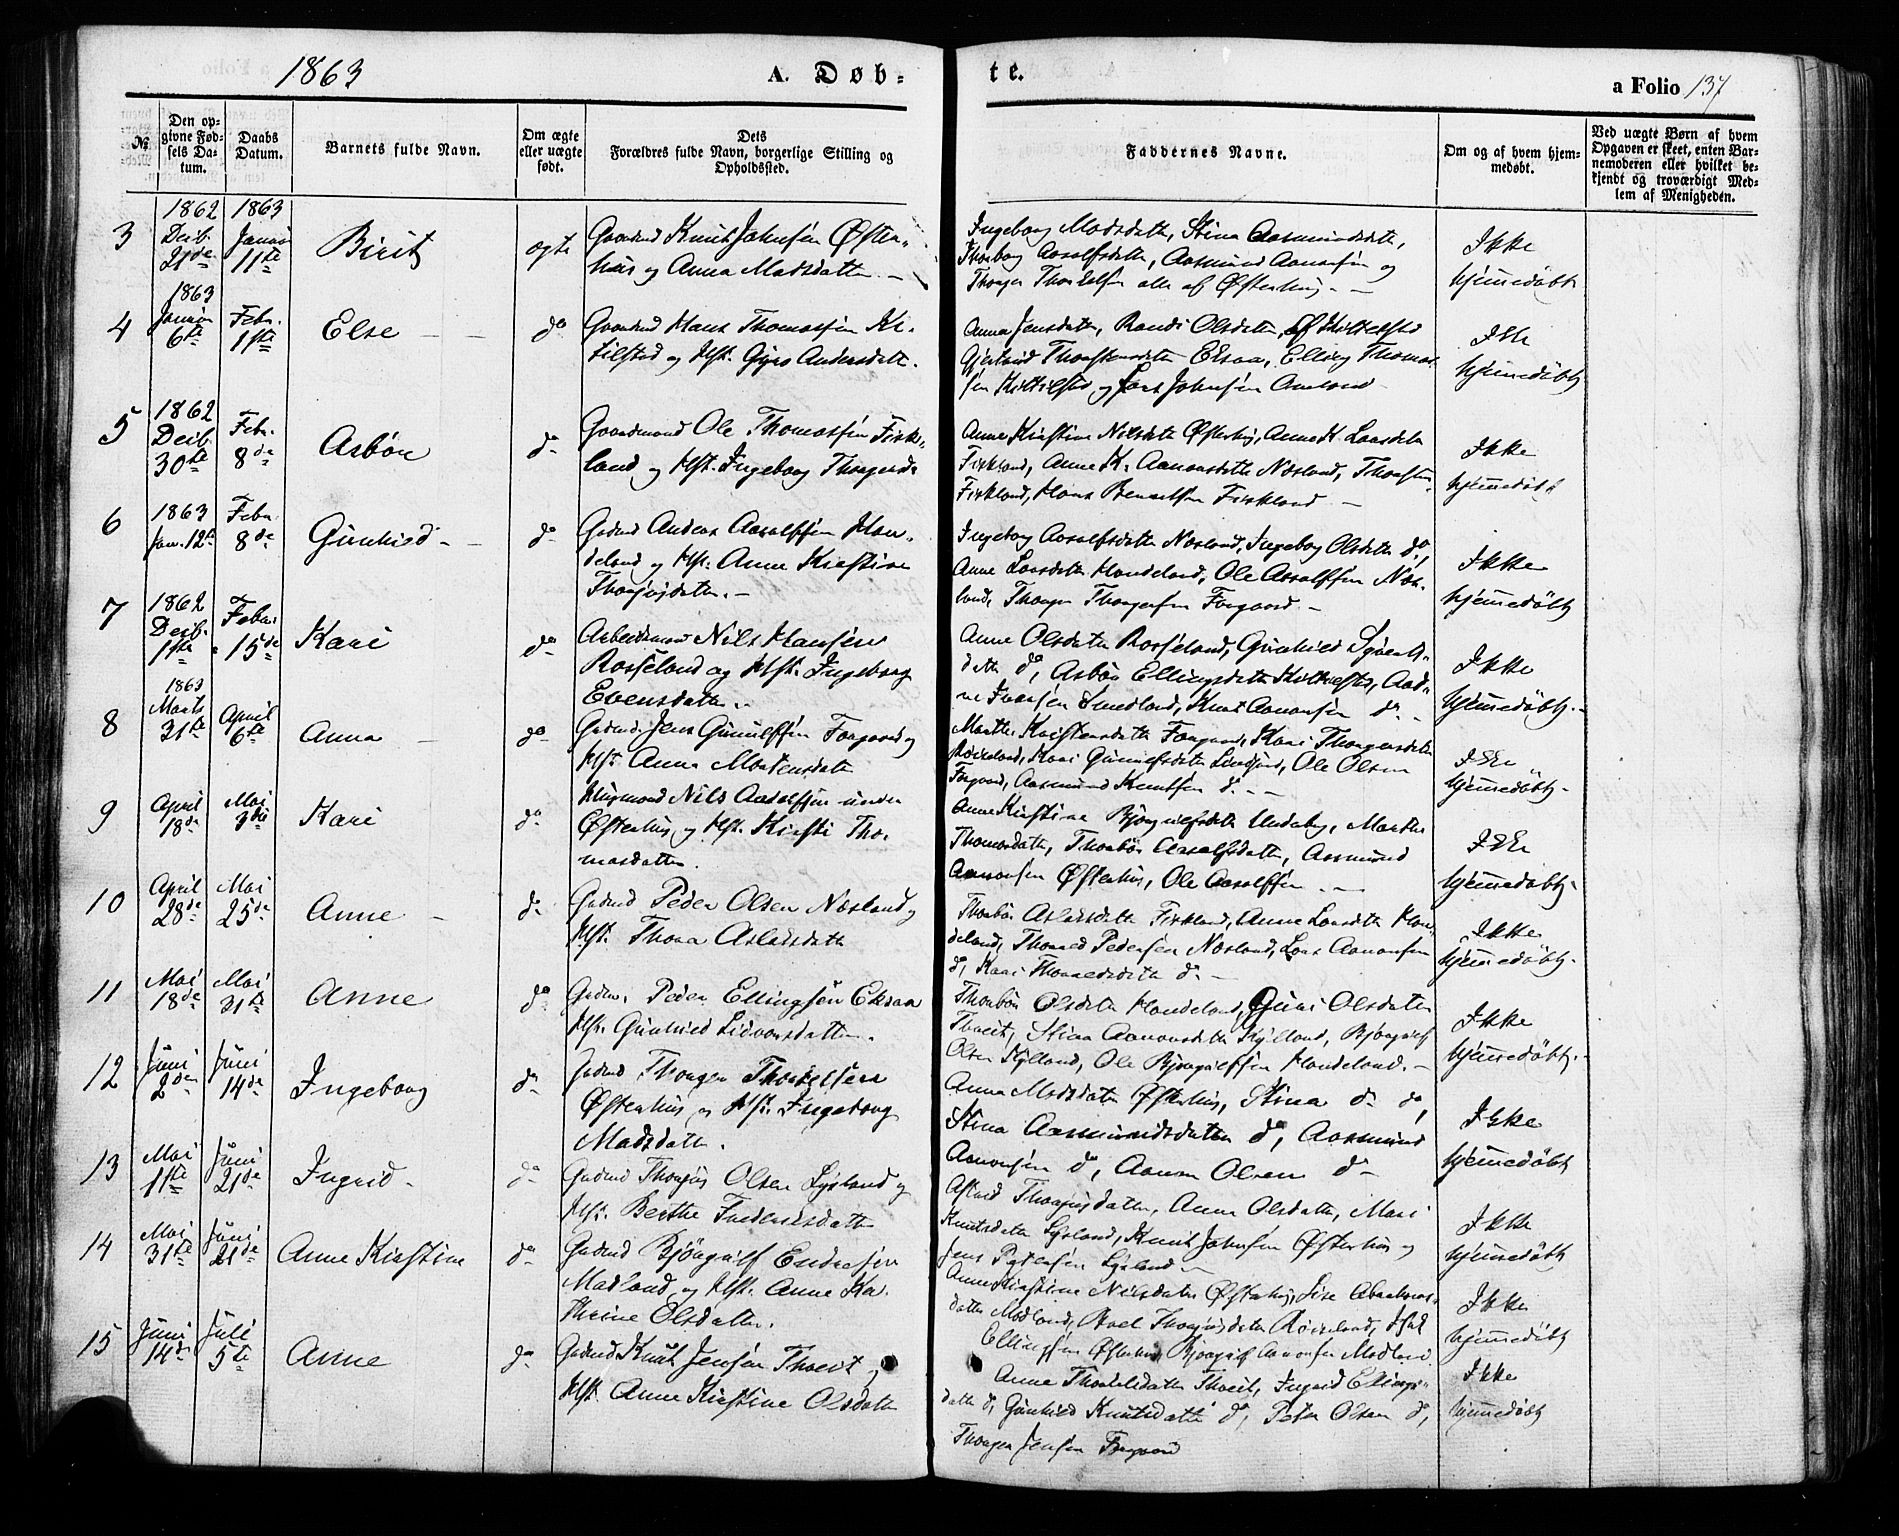 1863
A. Døb-
te.
a Folio 137
No.
Den op-
givne Fød-
sels Da-
tum.
Daabs
Datum.
Barnets fulde Navn.
Om ægte
eller uægte
født.
Dets
Forældres fulde Navn, borgerlige Stilling og
Opholdssted.
Faddernes Navne.
Om og af hvem hjem-
medøbt.
Ved uægte Børn af hvem
Opgaven er skeet, enten Bar-
nemoderen eller hvilket be-
kjendt og troværdigt Med-
lem af Menigheden.
3
1862
Decb.
21de
1863
Januar
11te
Birit
ægte
Gaardmd Knut Johnsen Øster-
huus og Anna Madsdatter. —
Ingeborg Madsdatter, Stina Aasmundsdatter,
Thorborg Aasulfsdatter, Aasmund Aanonsen og
Thorger Thorkelsen alle af Østerhuus. —
Ikke
hjemmedøbt
4
1863
Januar
6te
Febr.
1ste
Else
do
Gaardmd Hans Thomassen Ki-
tilstad og Hst. Gyro Andersdatt.
Anna Jensdatter, Randi Olsdatter, af Kittelstad
Gjertrud Thorstensdatter Eksaa, Elling Thomas-
sen Kittilstad og Lars Johnsen
Ikke
hjemmedøbt
5
1862
Decb.
30te
Febr.
8de
Asbör
do
Gaardmand Ole Thomassen Fisk-
land og Hst. Ingeborg Thorgersd.
Anne Kirstine Nilsdatter Østerhuus, Anne K. Larsdatter
Fiskland, Anne K. Aanonsdatter Nosland, Thorsten
Fiskland, Hans Berntsen Fiskland —
Ikke
hjemmedøbt
6
1863
Jan. 12te
Febr.
8de
Gunhild
do
Gadmd Anders Aasulfsen Hon-
deland og Hst. Anne Kirstine
Thorjusdatter. —
Ingeborg Aasulfsdatter Nosland, Ingeborg Olsdatter do,
Anne Larsdatter Hondeland, Ole Aasulfsen Nos-
land, Thorger Thorgersen Forgaard —
Ikke
hjemmedøbt
7
1862
Decb.
1ste
Febr.
15de
Kari
do
Arbeidsmand Nils Hansen
Rosseland og Hst. Ingeborg
Evensdatter.
Anne Olsdatter Rosseland, Gunhild
datter do, Asbör Ellingsdatter Kittelstad,
Iversen Smedland, Knut Aanonsen do —
Ikke
hjemmedøbt. —
8
1863
Marts
31te
April
6te
Anna
do
Gadmd. Jens Gunulfsen Forgaard og
Hst. Anna Mortensdatter
Marthe Kristensdatter Forgaard, Kari Thorgersdatter
Röiseland, Kari Gunulfsdatter, Ole Olsen
Forgaard, Aasmund Knutsen do —
Ikke
hjemmedøbt.
9
April
18de
Mai
3die
Kari
do
Husmand Nils Aadolfsen under
Østerhus og Hst. Kirsti Tho-
masdatter.
Anne Kirstine Björgulfsdatter, Marthe
Thomasdatter, Thorbör Aasulfsdatter, Aasmund
Aanonsen Østerhus, Ole Aasulfsen. —
Ikke
hjemmedøbt.
10
April
28de
Mai
25de
Anne
do
Gadmd Peder Olsen Nosland og
Hst. Thora Aslaksdatter
Thorbör Aslaksdatter Fiskland, Anne Larsdatter Hon-
deland, Thomas Pedersen Nosland, Lars Aanonsen
do, Kari do —
Ikke
hjemmedøbt.
11
Mai
18de
Mai
31te
Anne
do
Gadmd. Peder Ellingsen Eksaa
Hst. Gunhild Sidvorsdatter.
Thorbör Olsdatter Hondeland, Guri Olsdatter
Thveit, Stina Aanonsdatter Kylland, Björgulf
Olsen Kylland, Ole Björgulfsen Hondeland. —
Ikke
hjemmedøbt.
12
Juni
2den
Juni
14de
Ingeborg
do
Gadmd Thorger Thorkelsen
Østerhus og Hst. Ingeborg
Madsdatter.
Anna Madsdatter Østerhus, Stina do do,
Stina Aasmundsdatter do, Aasmund
Aanonsen do, Aanon Olsen do
Ikke
hjemmedøbt
13
Mai
11te
Juni
21de
Ingrid
do
Gadmd Thorjus Olsen Lysland og
Hst. Berthe Frederiksdatter
Astrid Thorjusdatter, Anne Olsdatter, Mari
Knutsdatter Lysland, Knut Johnsen Østerhus og
Jens Pedersen Lysland —
Ikke
hjemmedøbt
14
Mai
31te
Juni
21de
Anne Kirstine
do
Gadmd Björgulf Endresen
Modland og Hst. Anne Ka-
thrine Olsdatter.
Anne Kirstine Nilsdatter Østerhus, Lise Abrahams-
datter Modland, Thorjusdatter Röiseland, Isak
Ellingsen Østerhus, Björgulf Aanonsen Modland.
Ikke
hjemmedøbt
15
Juni
14de
Juli
5te
Anne
do
Gadmd Knut Jensen Thveit og
Hst. Anne Kirstine Olsdatter
Anne Thorkelsdatter Thveit, Ingrid Ellings-
datter do, Gunhild Knutsdatter do, Peter Olsen do,
Thorger Jensen Forgaard
Ikke
hjemmedøbt